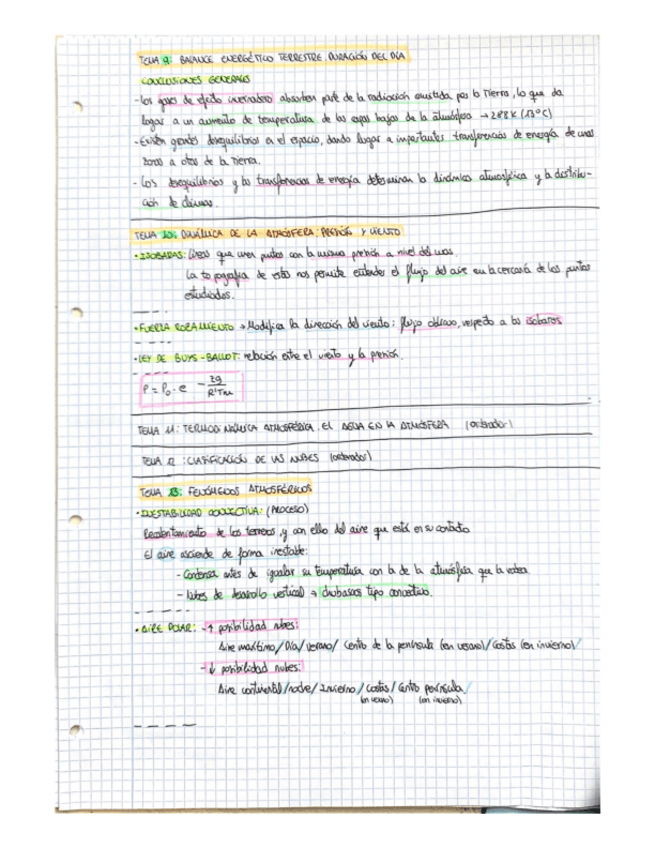 TEMA 9: BALANCE ENERGÉTICO TERRESTRE. DURACIÓN DEL DÍA
CONCLUSIONES GENERALES
- Los gases de efecto invernadero absorben parte de la radiación emitida por la Tierra, lo que da
lugar a un aumento de temperatura de las capas bajas de la atmósfera → 288 K (13°C)
- Existen grandes desequilibrios en el espacio, dando lugar a importantes transferencias de energía de unas
zonas a otras de la Tierra.
- Los desequilibrios y las transferencias de energía determinan la dinámica atmosférica y la distribu-
ción de climas.
TEMA 10: DINÁMICA DE LA ATMÓSFERA: PRESIÓN Y VIENTO
• ISOBARAS: líneas que unen puntos con la misma presión a nivel del mar.
La topografía de estas nos permite entender el flujo del aire en la cercanía de los puntos
estudiados.
• FUERZA ROZAMIENTO → Modifica la dirección del viento: flujo oblicuo, respecto a las isobaras
• LEY DE BUYS-BALLOT: relación entre el viento y la presión.
P = P₀ · e - zg / R'Tm
TEMA 11: TERMODINÁMICA ATMOSFÉRICA. EL AGUA EN LA ATMÓSFERA (ordenador)
TEMA 12: CLASIFICACIÓN DE LAS NUBES (ordenador)
TEMA 13: FENÓMENOS ATMOSFÉRICOS
• INESTABILIDAD CONVECTIVA: (PROCESO)
Recalentamiento de los terrenos y con ello del aire que está en su contacto
El aire asciende de forma inestable:
- Condensa antes de igualar su temperatura con la de la atmósfera que la rodea
- Nubes de desarrollo vertical → chubascos tipo convectivo.
• AIRE POLAR: - ↑ posibilidad nubes:
Aire marítimo / Día / verano / Centro de la península (en verano) / Costas (en invierno) /
- ↓ posibilidad nubes:
Aire continental / noche / Invierno / costas / Centro península /
(en verano) (en invierno)